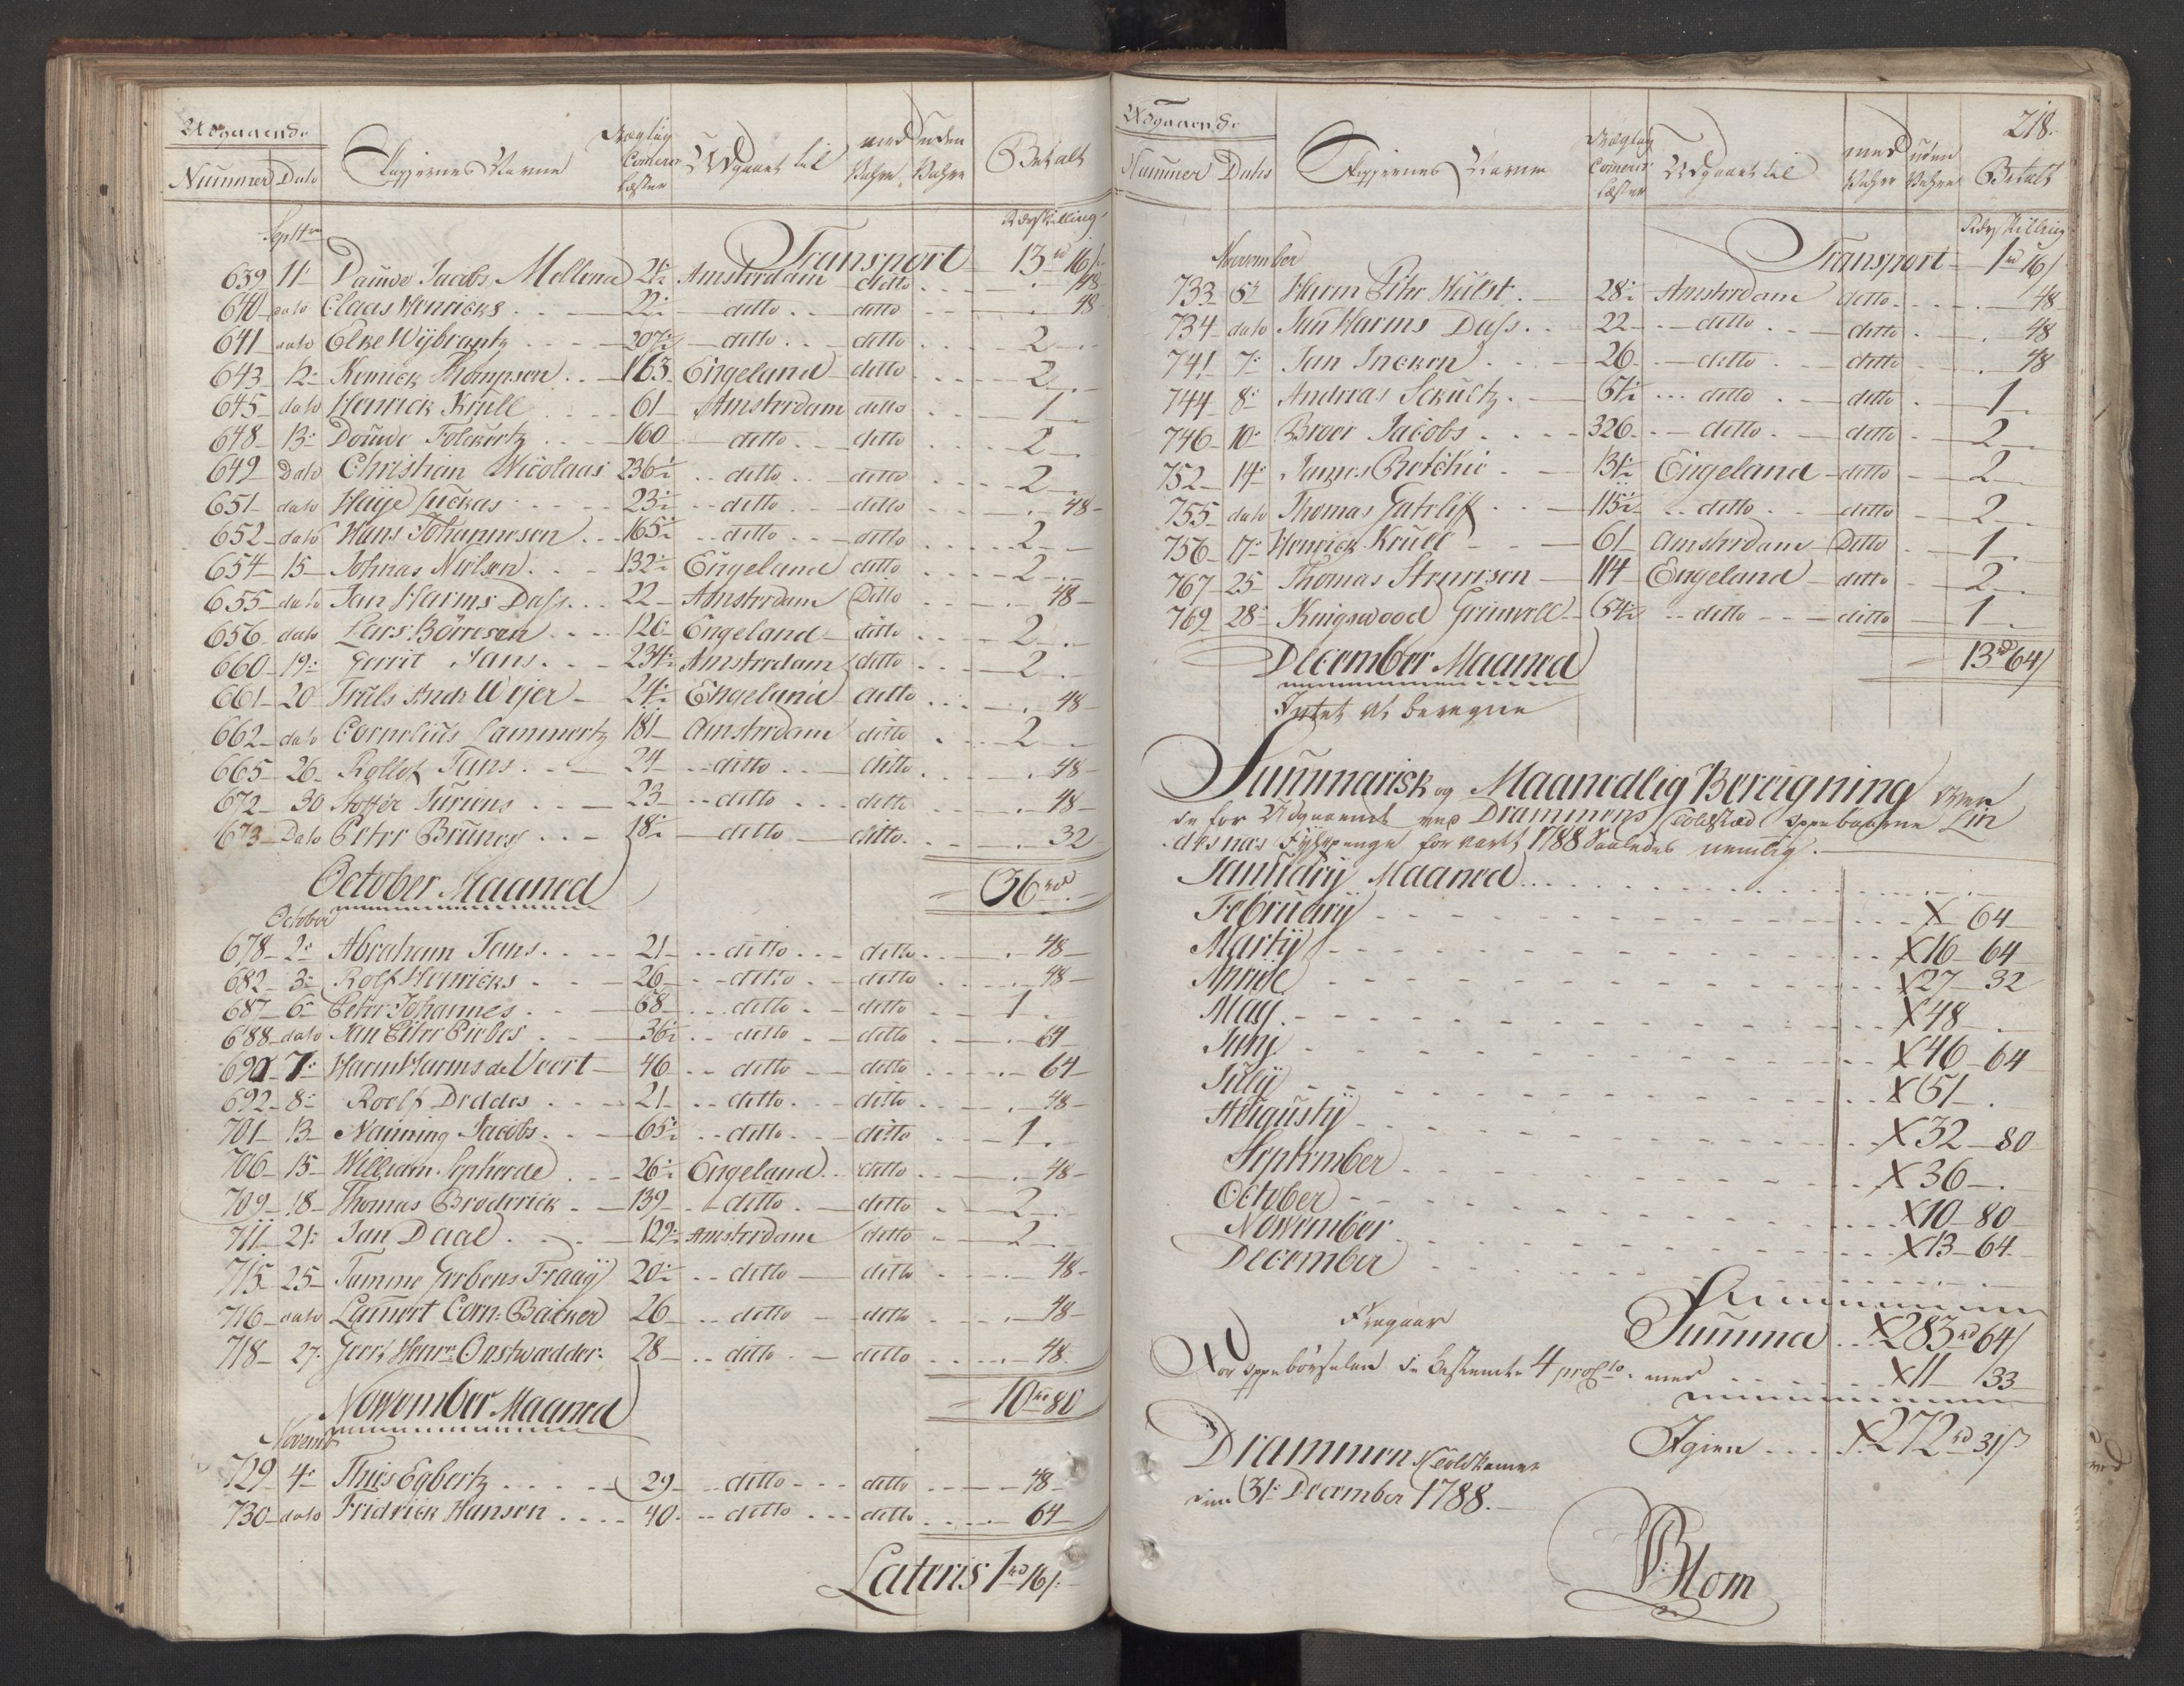 Udgaaende
Nummer Dato Skippernes Navne Drægtig Comerce Læster Udgaaet til med uden Betalt
Septbr
Rdr Skilling
Transport 13 rd 16 s
639 11 Dauwe Jacobs Mellema 21½ Amsterdam ditto 48
640 dato Claas Henricks 22½ ditto ditto 48
641 dato Elke Wybrantz 207½ ditto ditto 2
643 12 Kenrick Thompson 163 Engeland ditto 2
645 dato Henrick Krull 61 Amsterdam ditto 1
648 13 Douwe Folckertz 160 ditto ditto 2
649 Dato Christian Nicolaas 236½ ditto ditto 2
651 dato Haye Luckas 23½ ditto ditto 48
652 dato Hans Johannesen 165½ ditto ditto 2
654 15 Johnas Nielsen 132½ Engeland ditto 2
655 dato Jan Harms Dass 22 Amsterdam Ditto 48
656 dato Lars Börresen 126½ Engeland ditto 2
660 19 Gerrit Jans 234½ Amsterdam ditto 2
661 20 Truls Andr Weyer 24½ Engeland ditto 48
662 dato Cornelius Lammertz 181 Amsterdam ditto 2
665 26 Rollof Jans 24 ditto ditto 48
672 30 Stoffer Juriens 23 ditto ditto 48
673 Dato Peter Bruncy 18½ ditto ditto 32
October Maaned 36 rd
October
678 2 Abraham Jans 21 ditto ditto 48
682 3 Rolf Henricks 26 ditto ditto 48
687 6 Peter Johannes 68 ditto ditto 1
688 dato Jan Piter Piebes 36½ ditto ditto 64
690 7 Harm Harms de Weert 46 ditto ditto 64
692 8 Roelf Deddes 21 ditto ditto 48
701 13 Nanning Jacobs 65½ ditto ditto 1
706 15 William Sepherde 26½ Engeland ditto 48
709 18 Thomas Broderick 139 ditto ditto 2
711 21 Jan Daal 129½ Amsterdam ditto 2
715 25 Tamme Gerbens Fraay 20½ ditto ditto 48
716 dato Lamert Corn: Backer 26 ditto ditto 48
718 27 Gerk Henr: Onstwedder 28 ditto ditto 48
November Maaned 10 rd 80
Novemb
729 4 Thies Egbertz 29 ditto ditto 48
730 dato Fridrick Hansen 40 ditto ditto 64
Lateris 1 rd 16 s
218.
Udgaaende
Nummer Dato Skippernes Navne Drægtig Comerce Læster Udgaaet til med uden Betalt
Rdr Skilling
November Transport 1 rd 16 s
733 5 Harm Piter Hulst 28½ Amsterdam ditto 48
734 dato Jan Harms Dass 22 ditto ditto 48
741 7 Jan Incken 26 ditto ditto 48
744 8 Andreas Schultz 51½ ditto ditto 1
746 10 Broer Jacobs 326 ditto ditto 2
752 14 James Britchie 131½ Engeland ditto 2
755 dato Thomas Gatcliff 115½ ditto ditto 2
756 17 Henrick Krull 61 Amsterdam Ditto 1
767 25 Thomas Steuresen 114 Engeland ditto 2
769 28 Kingswood Grinwell 54½ ditto ditto 1
December Maaned 13 rd 64 s
Intet at beregne
Summarisk og Maanedlig Bereigning over
de for Udgaaende ved Drammens Toldsted oppebaarne Lin
desnæs Fyhrpenge for aaret 1788 Saaledes nemlig.
January Maaned
February X 64
Martij X 16 64
Aprile X 27 32
May X 48
Junj X 46 64
July X 51
Augustij X 32 80
September X 36
October X 10 80
November X 13 64
December
Summa X 283 rd 64 s
Fragaar
For oppebörselen de bestemte 4 proCto. med X 11 33
Igien X 272 rd 31 s
Drammens Toldkamer
den 31 December 1788.
Blom